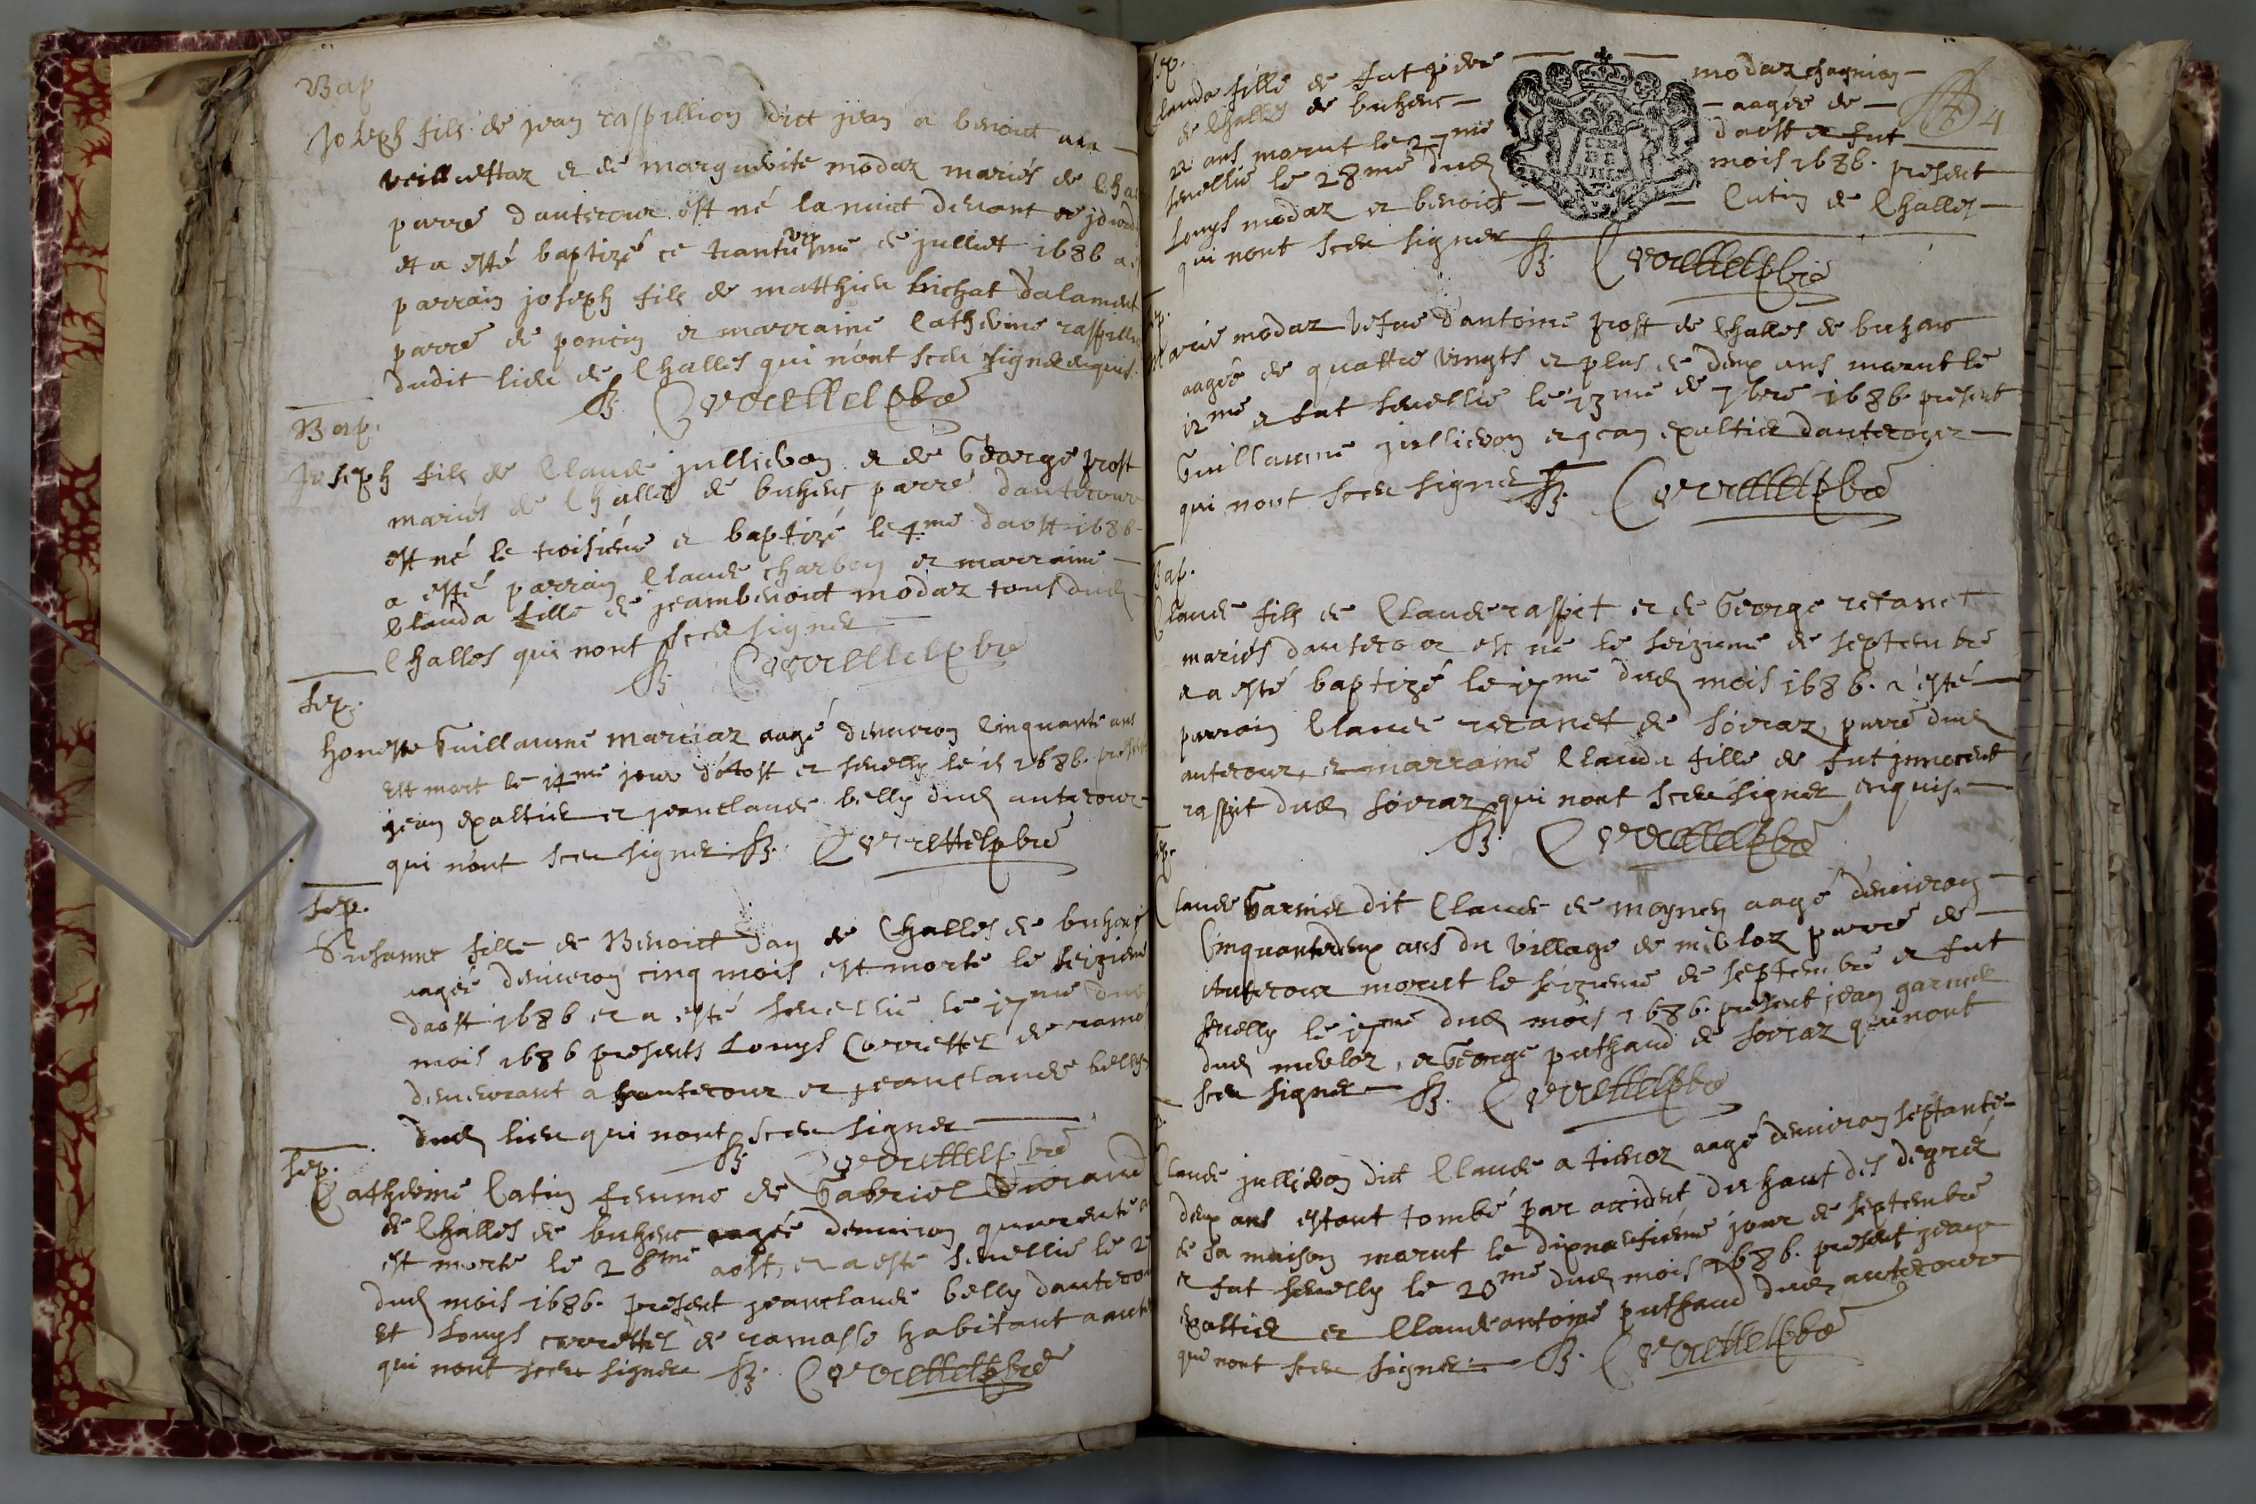 Bap
Joseph fils de jean raspillion dict jean a benoict
veilluettaz et de marguerite modaz mariés de
parre d'auterour est né la nuict devant
et a esté baptizé ce trantuniesme de julliet 1686
parrain joseph fils de matthieu bichat
parre de poncin et marraine Catherine
dudit lieu de Challes qui n'ont sceu signer enquis.
Correttel pbre
Bap.
Joseph fils de Claude jullieron et de George prost
mariés de Challes de buhenc parre d'auterour
est né le troisiéme et baptizé le 4me d'aost 1686
a esté parrain Claude charbon et marraine
Clauda fille de jeambenoict modaz tous dud
Challes qui n'ont sceu signer
Correttel pbre
Sep.
honeste Guillaume marciaz aagé d'enuiron Cinquante ans
est mort le 14me jour d'aost et seuelly le 15 1686. present
jean expaltier et jeanclaude belly dud auterour
qui n'ont sceu signer Correttel pbre
Sep.
Susanne fille de Benoict Jay de Challes de buhenc
aagée d'enuiron cinq mois est morte le seiziéme
d'aost 1686 et a esté seuellie le 17me dud
mois 1686 presents Louys Correttel de
demeurant a hauterour et jeanclaude belly
dud lieu qui n'ont sceu signer
Correttel pbre
Sep.
Catherine Catin femme de Gabriel
de Challes de buhenc aagée d'enuiron quarente
est morte le 28me aost, et a esté seuellie le
dud mois 1686. present jeanclaude belly d'auterour
et Louys correttel de ramasse habitant
qui n'ont sceu signer Correttel pbre
Sep.
Clauda fille de fut modaz
de Challes de buhenc — aagée de —
22 ans morut le 27me d'aost et fut
seuellie le 28me dud mois 1686. present
Louys modaz et benoict — Cutin de Challes —
qui n'ont sceu signer Correttel pbre
4
Sep.
Marie modaz vefue d'antoine prost de Challes de buhenc
aagée de quattre vingts et plus de deux ans morut le
12me et fut seuellie le 13me de 7bre 1686. present
Guillaume jullieron et jean expaltier d'auterour
qui n'ont sceu signer Correttel pbre
Bap.
Claude fils de Claude raspit et de George recanet
mariés d'auterour est né le seiziéme de septembre
et a esté baptizé le 17me dud mois 1686. a esté
parrain Claude recanet de soiraz parre dud
auterour, et marraine Clauda fille de fut jnnocent
raspit dud soiraz qui n'ont sceu signer enquis.
Correttel pbre
Sep.
Claude Garnier dit Claude de moyney aagé d'enuiron
Cinquantedeux ans du village de merloz parre de
auterour morut le séziéme de septembre et fut
seuelly le 17me dud mois 1686. present jean garnier
dud merloz, et George puthaud de soiraz qui n'ont
sceu signer Correttel pbre
Claude jullieron dict Claude a tieuoz aagé d'enuiron septante
deux ans estant tombé par accident du haut des degrez
de sa maison morut le dixneufiéme jour de septembre
et fut seuelly le 20me dud mois 1686. present jean
expaltier et Claudeantoine puthaud dud auterour
qui n'ont sceu signer. Correttel pbre